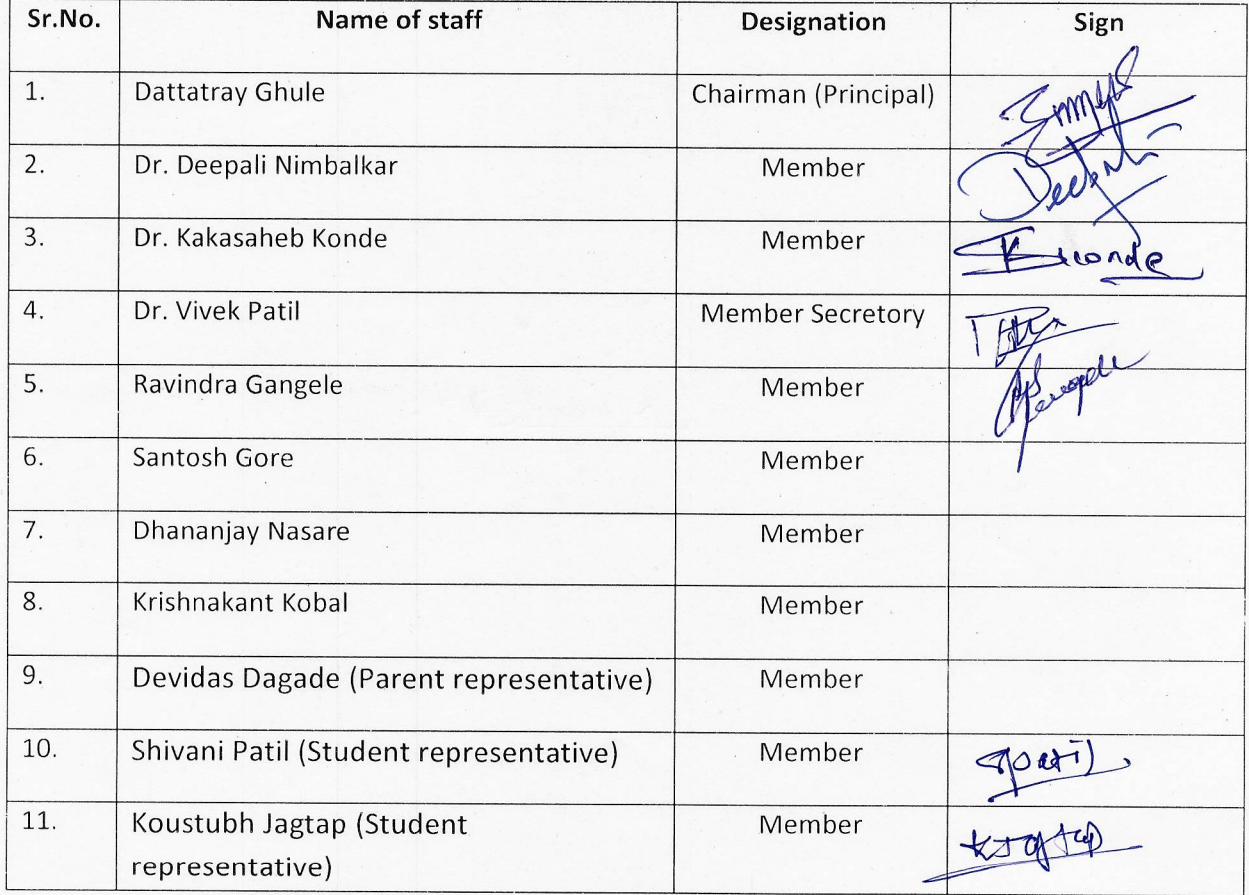 Sr.No. Name of staff Designation Sign
1. Dattatray Ghule Chairman (Principal)
2. Dr. Deepali Nimbalkar Member
3. Dr. Kakasaheb Konde Member
4. Dr. Vivek Patil Member Secretory
5. Ravindra Gangele Member
6. Santosh Gore Member
7. Dhananjay Nasare Member
8. Krishnakant Kobal Member
9. Devidas Dagade (Parent representative) Member
10. Shivani Patil (Student representative) Member
11. Koustubh Jagtap (Student Member
representative)